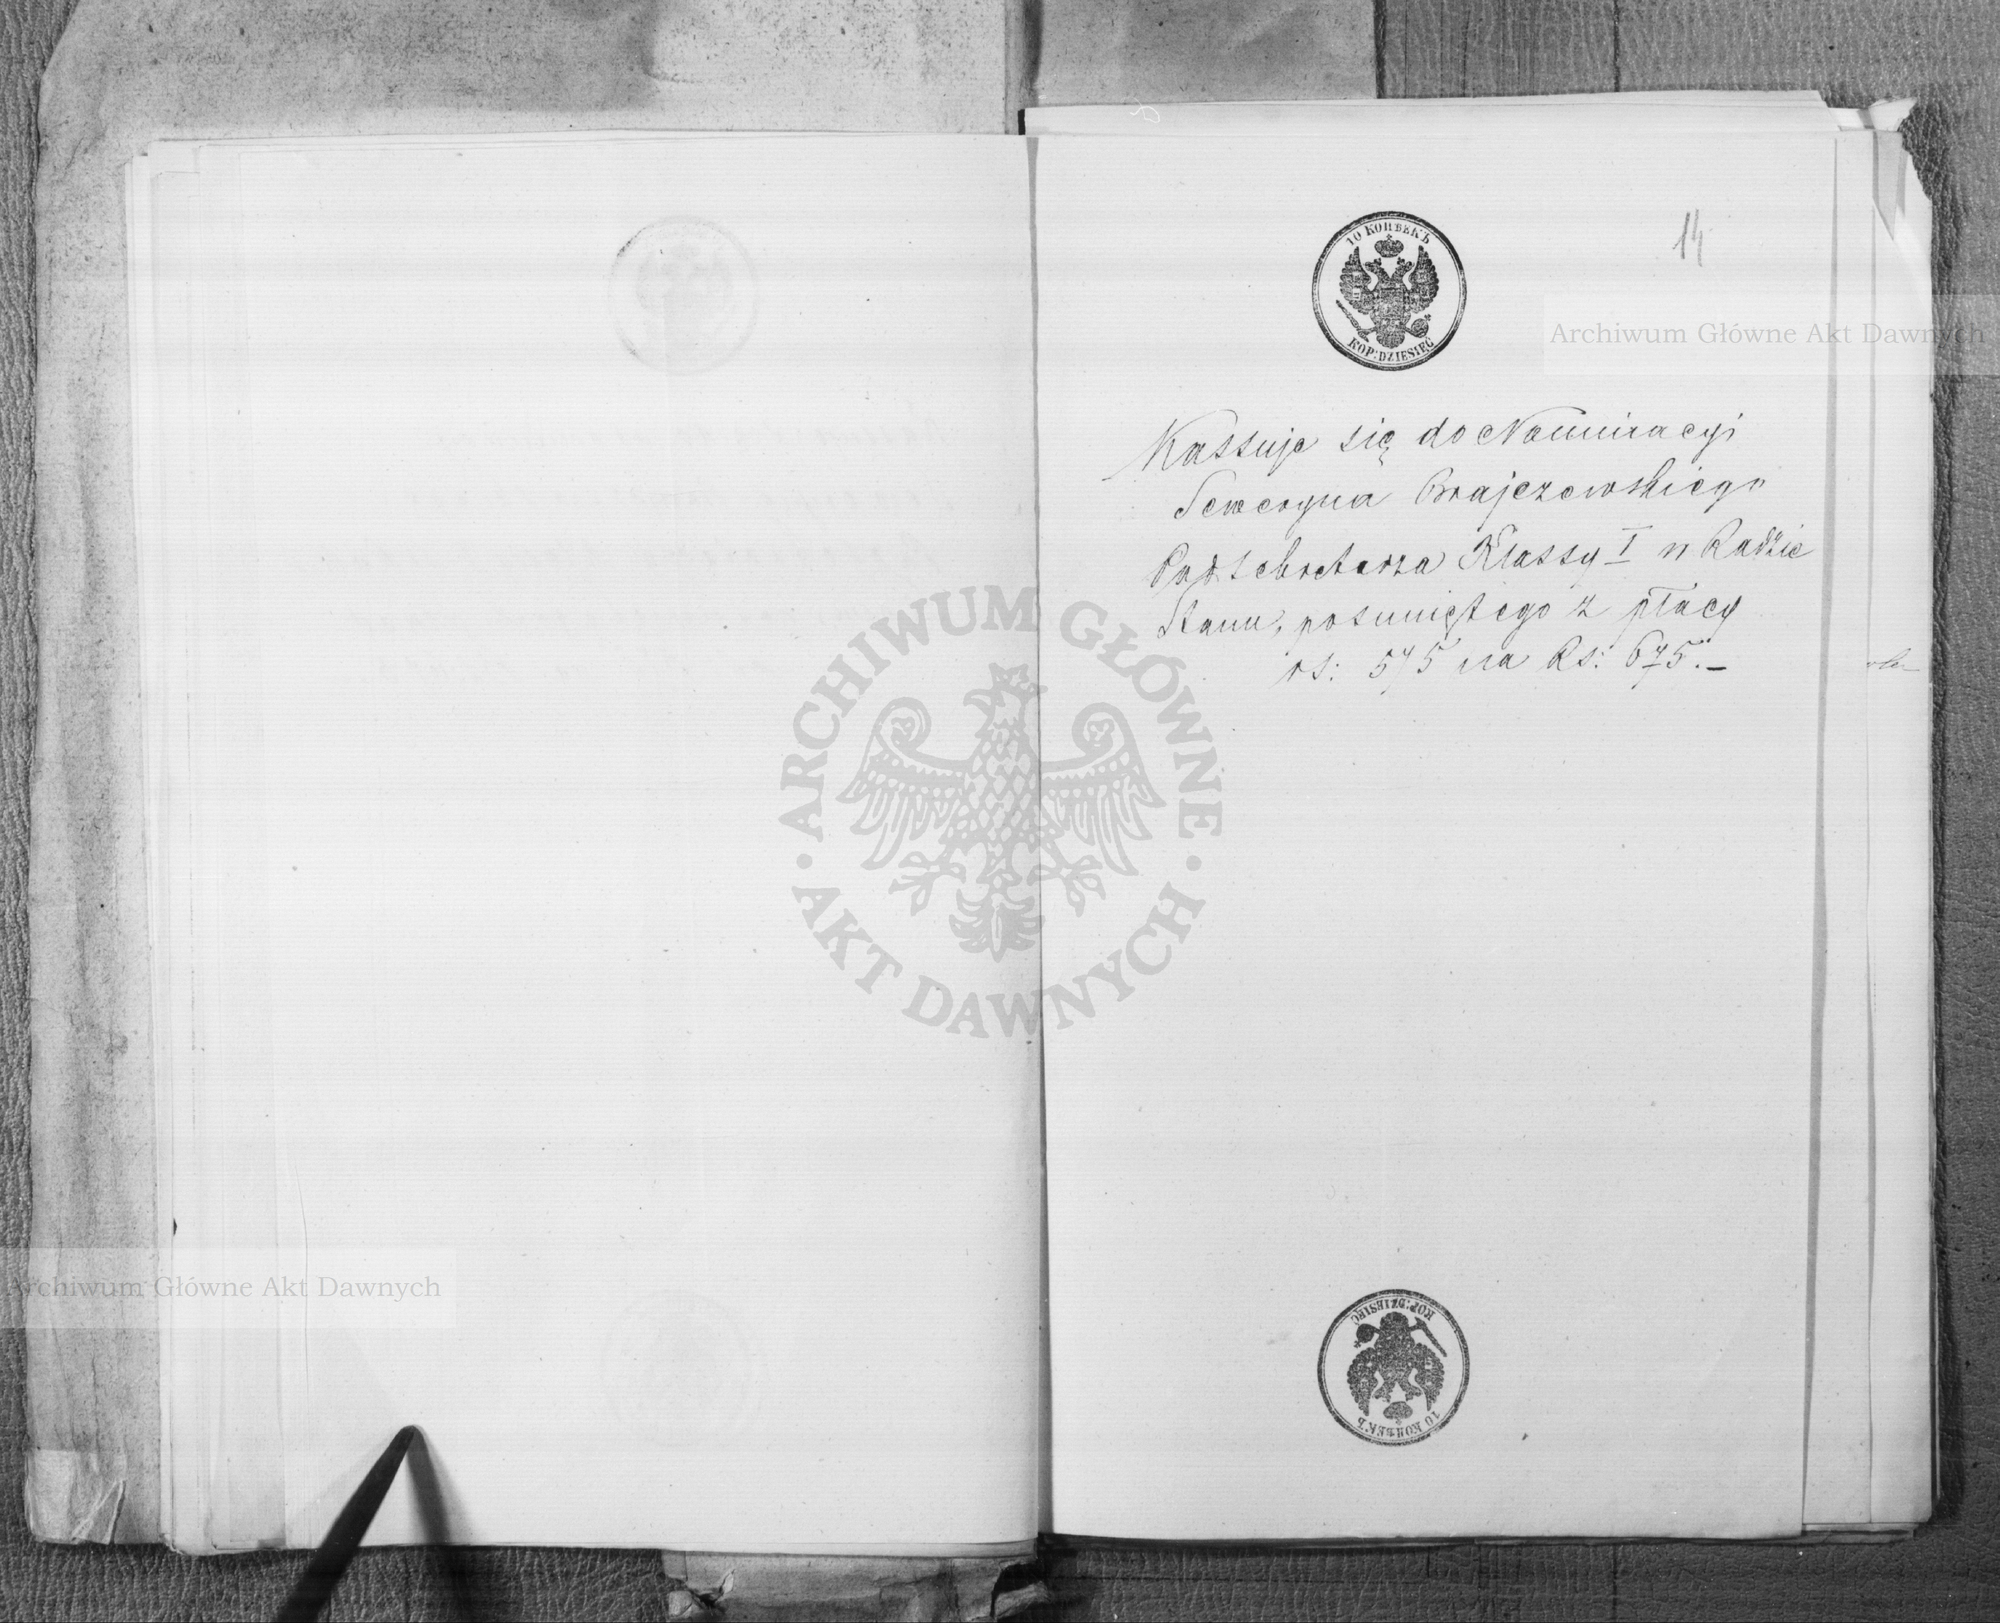 10 КОПѢЕКЪ
KOP: DZIESIĘĆ
14
Archiwum Główne Akt Dawnych
Kassuje się do Nominacyi
Seweryna Brajczewskiego
Podsekretarza Klassy I w Radzie
Stanu, posuniętego z płacy
rs: 575 na Rs: 675.–
ARCHIWUM GŁÓWNE
AKT DAWNYCH
Archiwum Główne Akt Dawnych
10 КОПѢЕКЪ
KOP: DZIESIĘĆ